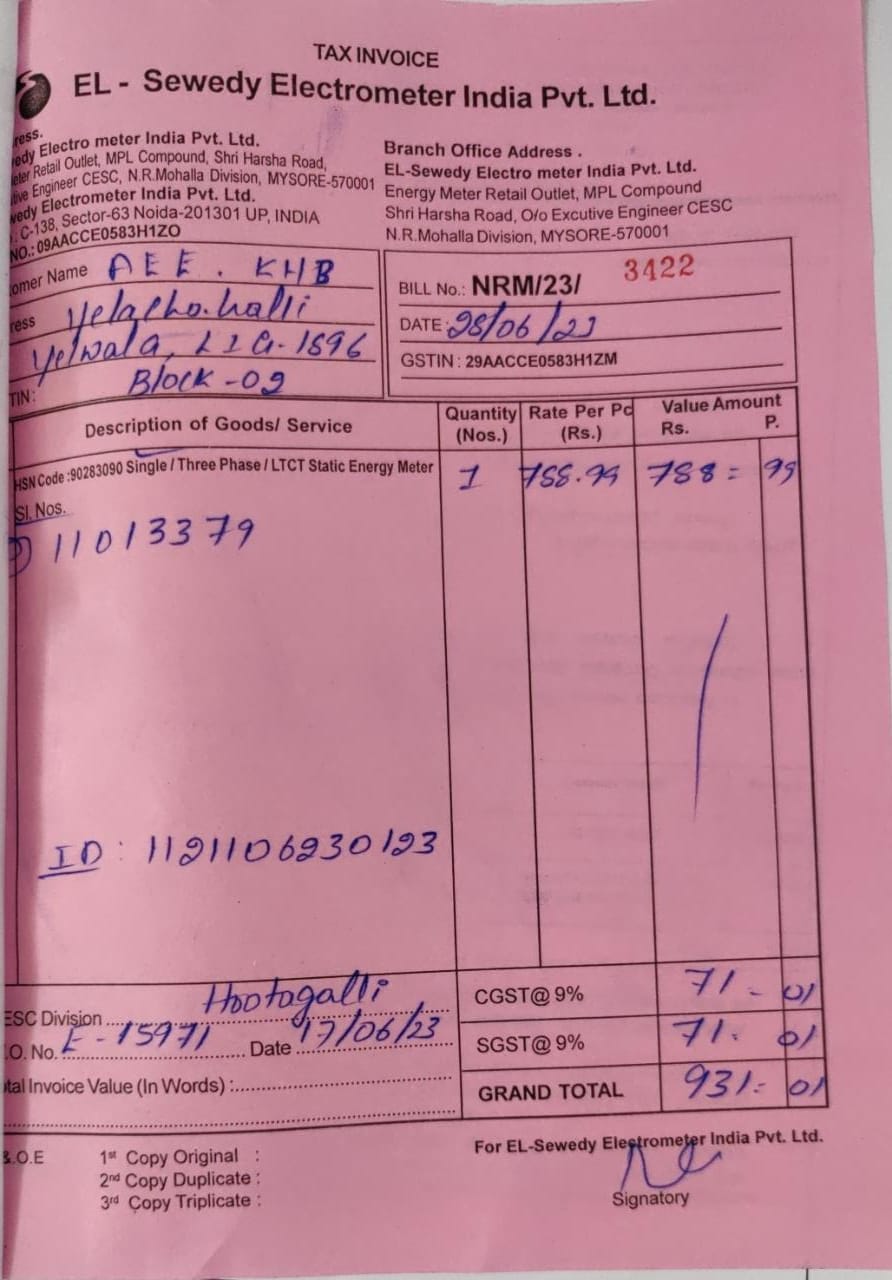 TAX INVOICE
EL - Sewedy Electrometer India Pvt. Ltd.
ress.
edy Electro meter India Pvt. Ltd.
eter Retail Outlet, MPL Compound, Shri Harsha Road,
tive Engineer CESC, N.R.Mohalla Division, MYSORE-570001
wedy Electrometer India Pvt. Ltd.
: C-138, Sector-63 Noida-201301 UP, INDIA
NO.: 09AACCE0583H1ZO
Branch Office Address .
EL-Sewedy Electro meter India Pvt. Ltd.
Energy Meter Retail Outlet, MPL Compound
Shri Harsha Road, O/o Excutive Engineer CESC
N.R.Mohalla Division, MYSORE-570001
omer Name AEE. KHB
ress Yelacho.halli
Yelwala, LIG-1896
TIN: Block-09
BILL No.: NRM/23/ 3422
DATE : 28/06/23
GSTIN : 29AACCE0583H1ZM
Description of Goods/ Service Quantity (Nos.) Rate Per Pc (Rs.) Value Amount Rs. P.
HSN Code :90283090 Single / Three Phase / LTCT Static Energy Meter 1 788.99 788 = 99
Sl. Nos.
1) 11013379
ID : 1121106230123
ESC Division Hootagalli
.O. No. E-15971 Date 17/06/23
tal Invoice Value (In Words) :
CGST@ 9% 71 - 01
SGST@ 9% 71. 01
GRAND TOTAL 931- 01
&.O.E
1st Copy Original :
2nd Copy Duplicate :
3rd Copy Triplicate :
For EL-Sewedy Electrometer India Pvt. Ltd.
Signatory